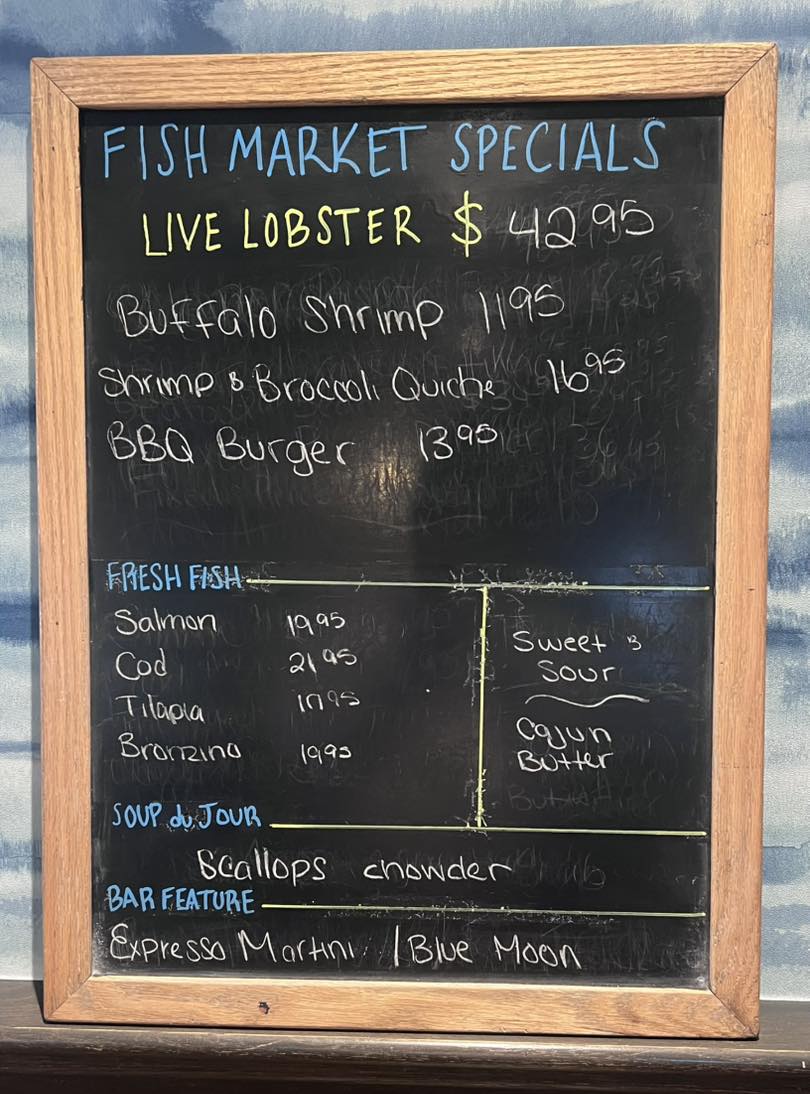 FISH MARKET SPECIALS
LIVE LOBSTER $ 42 95
Buffalo Shrimp 11 95
Shrimp & Broccoli Quiche 16 95
BBQ Burger 13 95
FRESH FISH
Salmon 19.95
Cod 21 95
Tilapia 17 95
Bronzino 19.95
Sweet &
Sour
Cajun
Butter
SOUP du JOUR
Scallops chowder
BAR FEATURE
Expresso Martini / Blue Moon